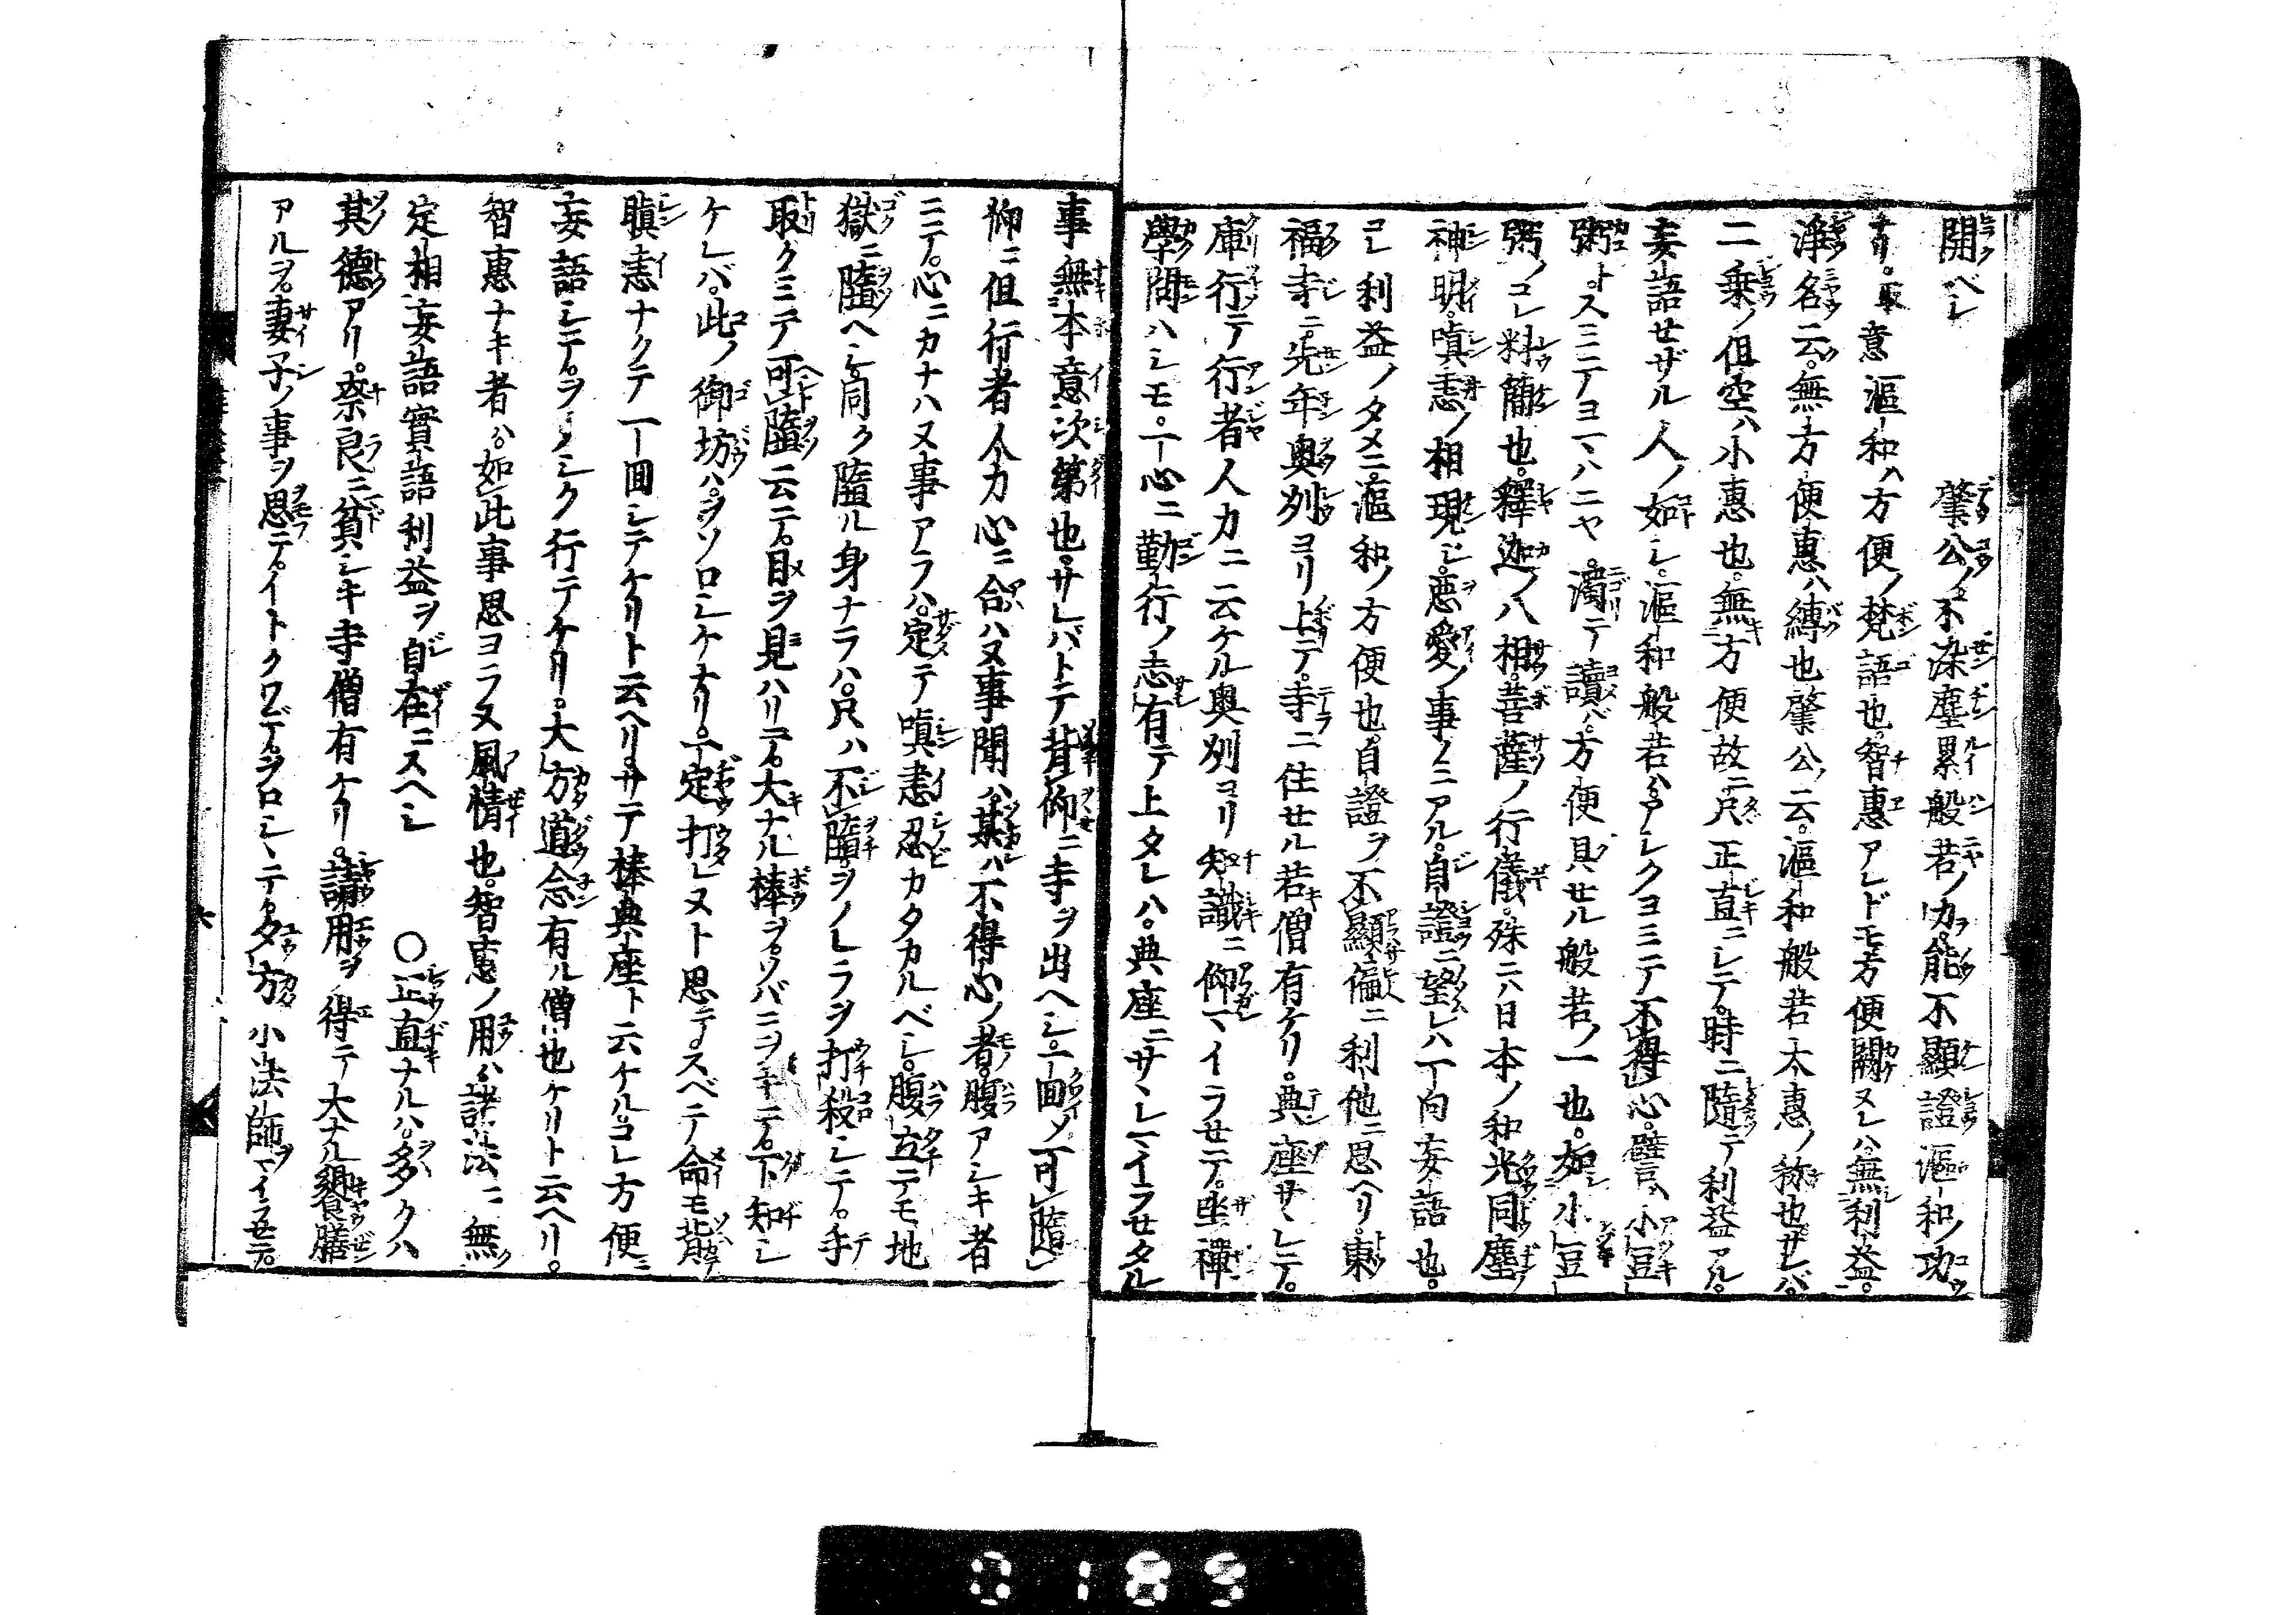 開ベシ　肇公ノ不染塵累般若ノ力能不顯證漚和ノ功
ナリ。取意漚和ハ方便ノ梵語也智惠アレドモ方便闕ヌレハ無利益。
淨名云。無方便惠ハ縛也肇公ノ云。漚和般若大惠ノ称也サレバ。
二乗ノ但空ハ小惠也。無方便故ニ只正直ニシテ。時ニ隨テ利益アル。
妄語せザル人ノ如シ。漚和般若ハ。アシクヨミテ不得心。譬ハ小豆
粥トスミテヨマハニヤ。濁テ讀バ。方便具せル般若ノ一也。如小豆
粥ノコレ料簡也。釋迦ノ八相。菩薩ノ行儀。殊ニハ日本ノ和光同塵
神明。嗔恚ノ相現シ。悪愛ノ事ノミアル。自證ニ望レハ一向妄語也。
コレ利益ノタメニ漚和ノ方便也。自證ヲ不顯偏ニ利他ニ思ヘリ。東
福寺ニ先年奥州ヨリ上テ。寺ニ住せル若僧有ケリ。典座サヽレテ。
庫行テ行者人力ニ云ケル奥州ヨリ知識ニ仰マイラせテ。坐禪
學問ハシモ。一心ニ勤行ノ志有テ上タレハ。典座ニサヽレマイラせタル
事無本意次第也。サレバトテ背仰ニ寺ヲ出ヘシ。一回ノ可隨
仰ニ但行者人力心ニ合ハヌ事聞ハ某ハ不得心ノ者。腹アシキ者
ニテ。心ニカナハヌ事アラハ。定テ嗔恚忍カタカルベシ。腹立テモ地
獄ニ墮ヘシ。同ク墮ル身ナラハ。只ハ不墮。ヲノレラヲ打殺シテ。手
取クミテ可墮云テ。目ヲ見ハリテ。大ナル棒ヲ。ソバニヲキテ。下知シ
ケレバ。此ノ御坊ハ。ヲソロシケナリ。一定打レヌト思テ。スベテ命モ背
瞋恚ナクテ一回シテケリト云ヘリ。サテ棒典座ト云ケル。コレ方便ニ
妄語シテ。ヲソロシク行テケリ。大方道念有ル僧也ケリト云ヘリ。
智惠ナキ者ハ。如此事思ヨラヌ風情也。智惠ノ用ハ諸法ニ無
定相。妄語實語利益ヲ自在ニスヘシ　〇正直ナルハ。多クハ
其德アリ。奈良ニ貧シキ寺僧有ケリ。請用ヲ得テ大ナル饗膳
アルヲ。妻子ノ事ヲ思テ。イトクワデ。ヲロシヽテ。夕方小法師マイラせテ。
六
0189